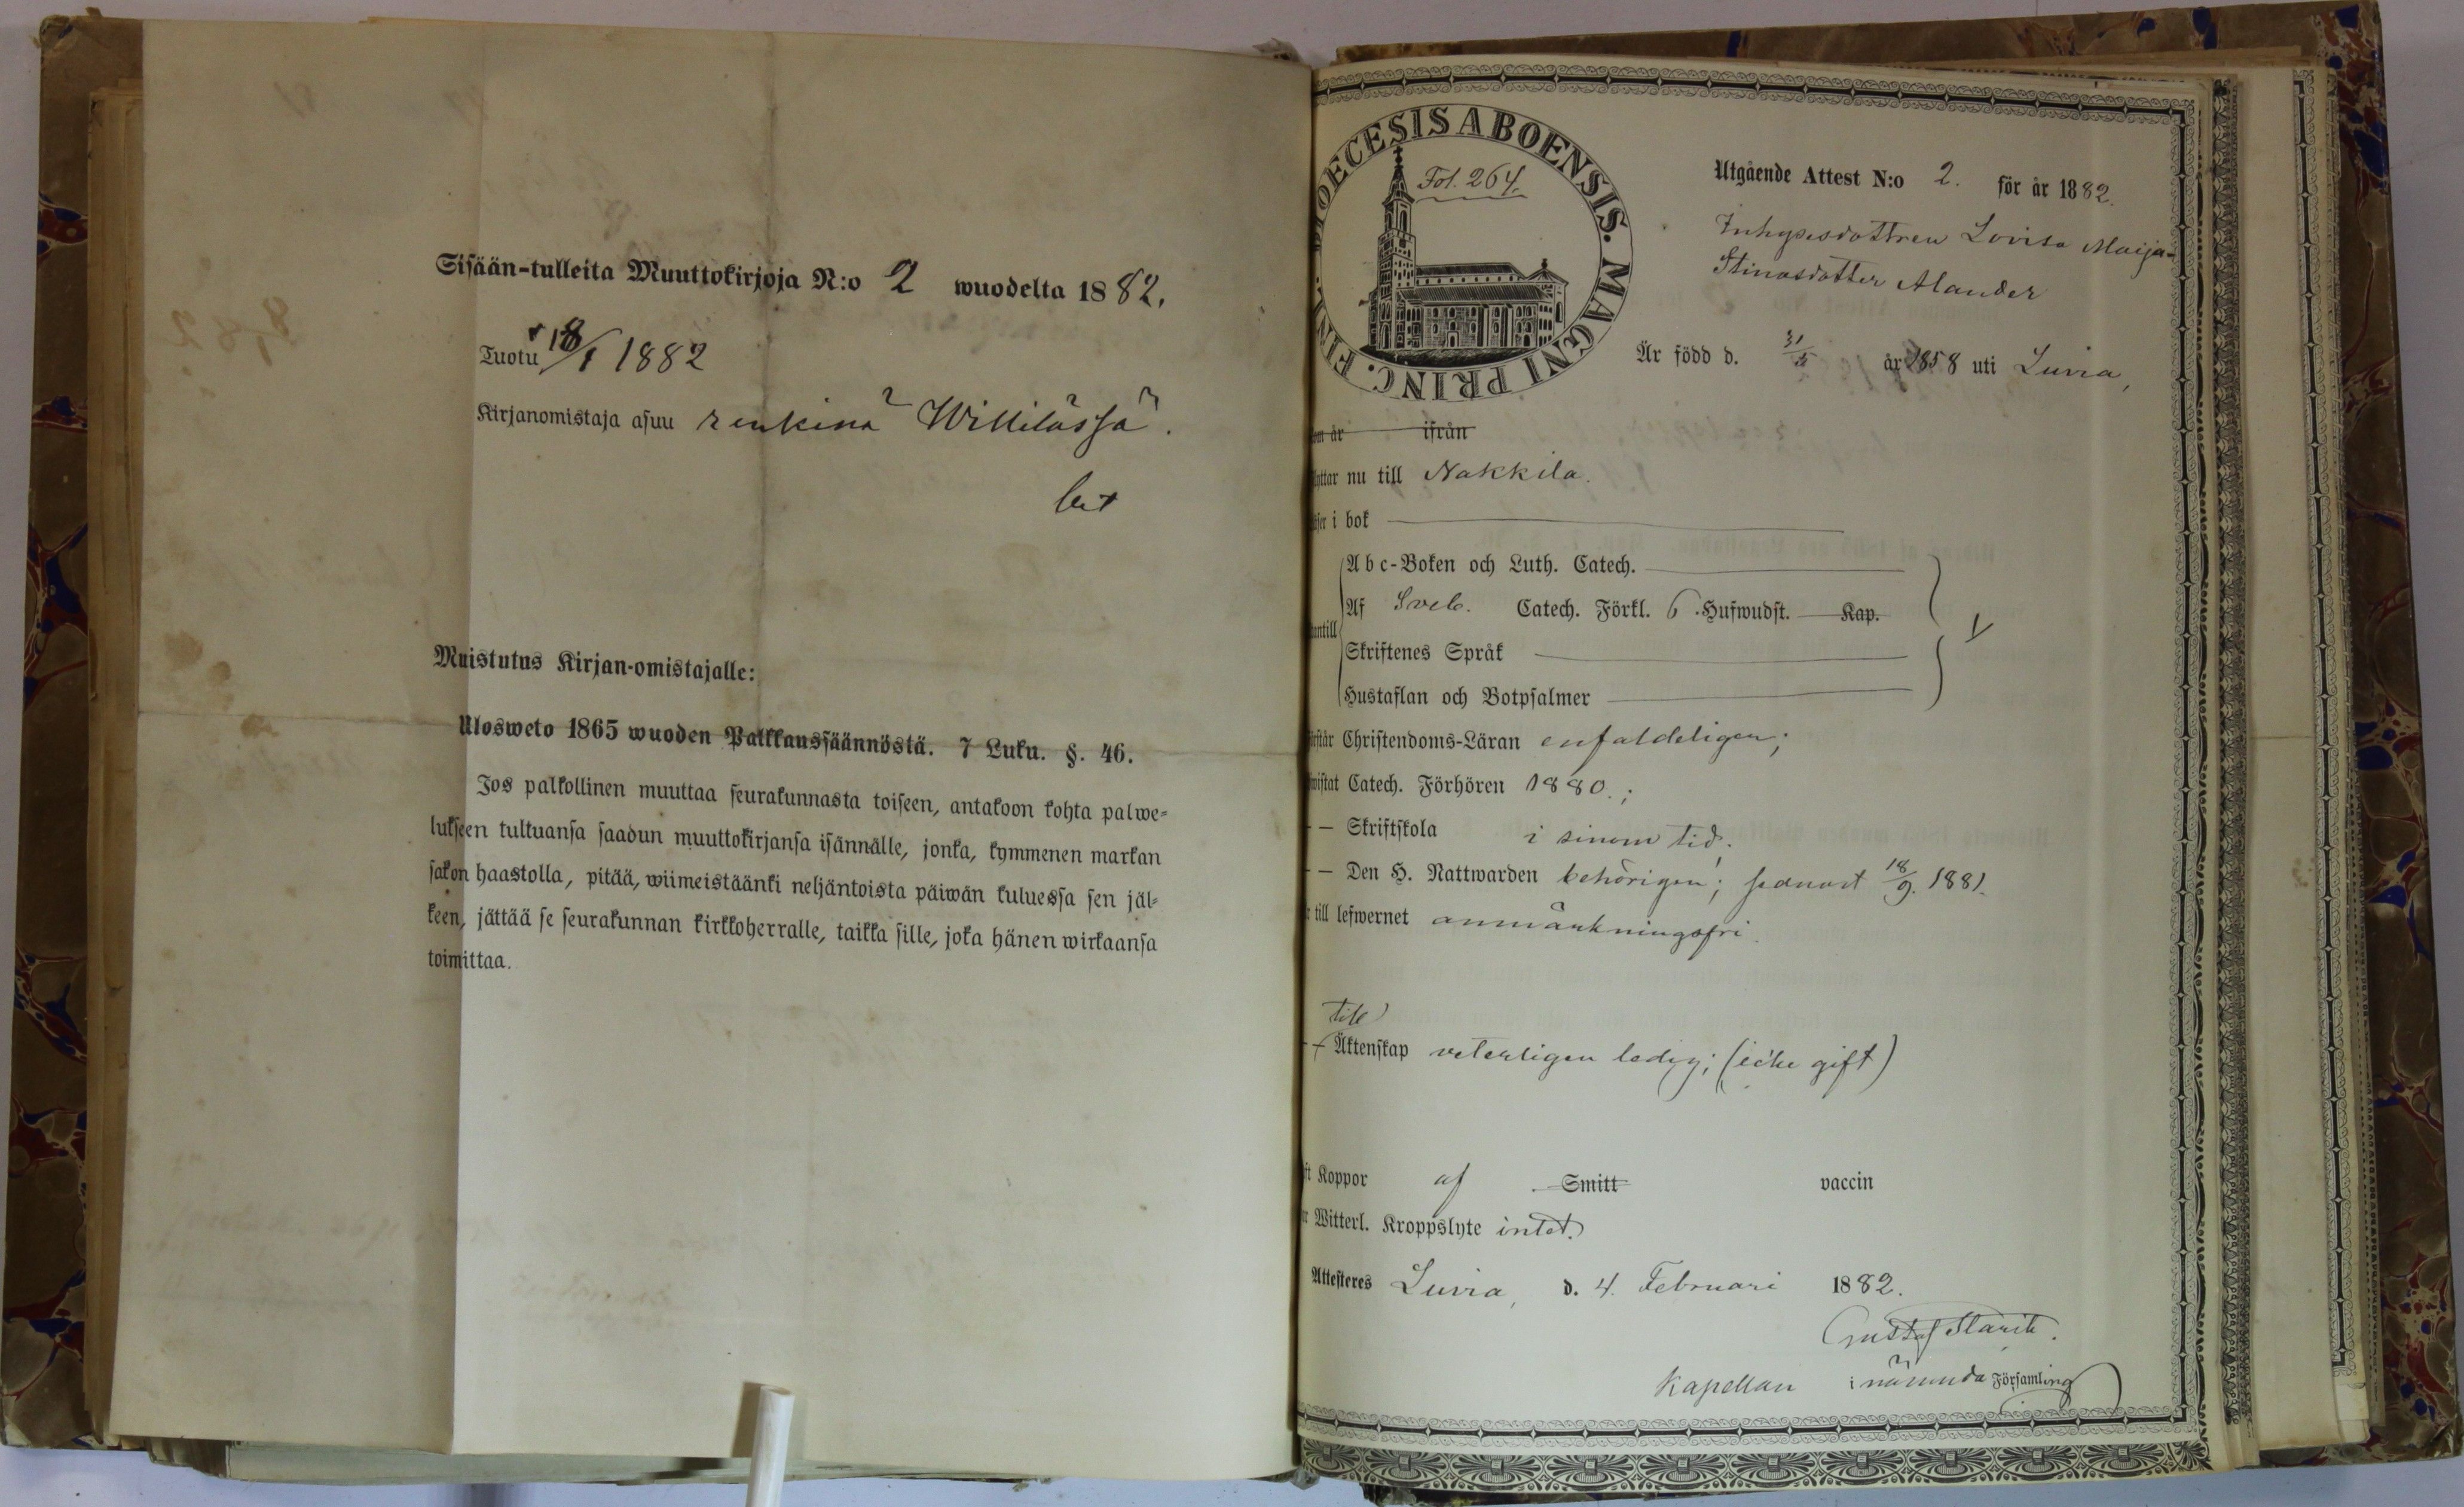 Sisään-tulleita Muuttokirjoja N:o 2 wuodelta 1882.
Tuotu 18/1 1882
Kirjanomistaja asuu renkinä Willilässä.
Muistutus Kirjan-omistajalle:
Ulosweto 1865 wuoden Palkkaussäännöstä. 7 Luku. §. 46.
Jos palkollinen muuttaa seurakunnasta toiseen, antakoon kohta palwe-
lukseen tultuansa saadun muuttokirjansa isännälle, jonka, kymmenen markan
sakon haastolla, pitää, wiimeistäänki neljäntoista päiwän kuluessa sen jäl-
keen, jättää se seurakunnan kirkkoherralle, taikka sille, joka hänen wirkaansa
toimittaa.
DIOECESIS ABOENSIS. MAGNI PRINC. FINL.
Fol. 264.
Utgående Attest N:o 2. för år 1882.
Inhysesdottren Lovisa Maija-
Stinasdotter Alander
Är född d. 31/5 år 1858 uti Luvia,
år ifrån
nu till Nakkila.
i bok
Abc-Boken och Luth. Catech.
Af Sveb. Catech. Förkl. 6. Hufwudst. Kap.
Skriftenes Språk
Hustaflan och Botpsalmer
Christendoms-Läran enfaldeligen;
Catech. Förhören 1880.;
— Skriftskola i sinom tid.
— Den H. Nattwarden behörigen; senast 18/9. 1881.
till lefwernet anmärkningsfri.
till
Äktenskap veterligen ledig; (icke gift)
Koppor af Smitt vaccin
Witterl. Kroppslyte intet.
Attesteres Luvia, d. 4. Februari 1882.
Gustaf
Kapellan i nämnda Församling